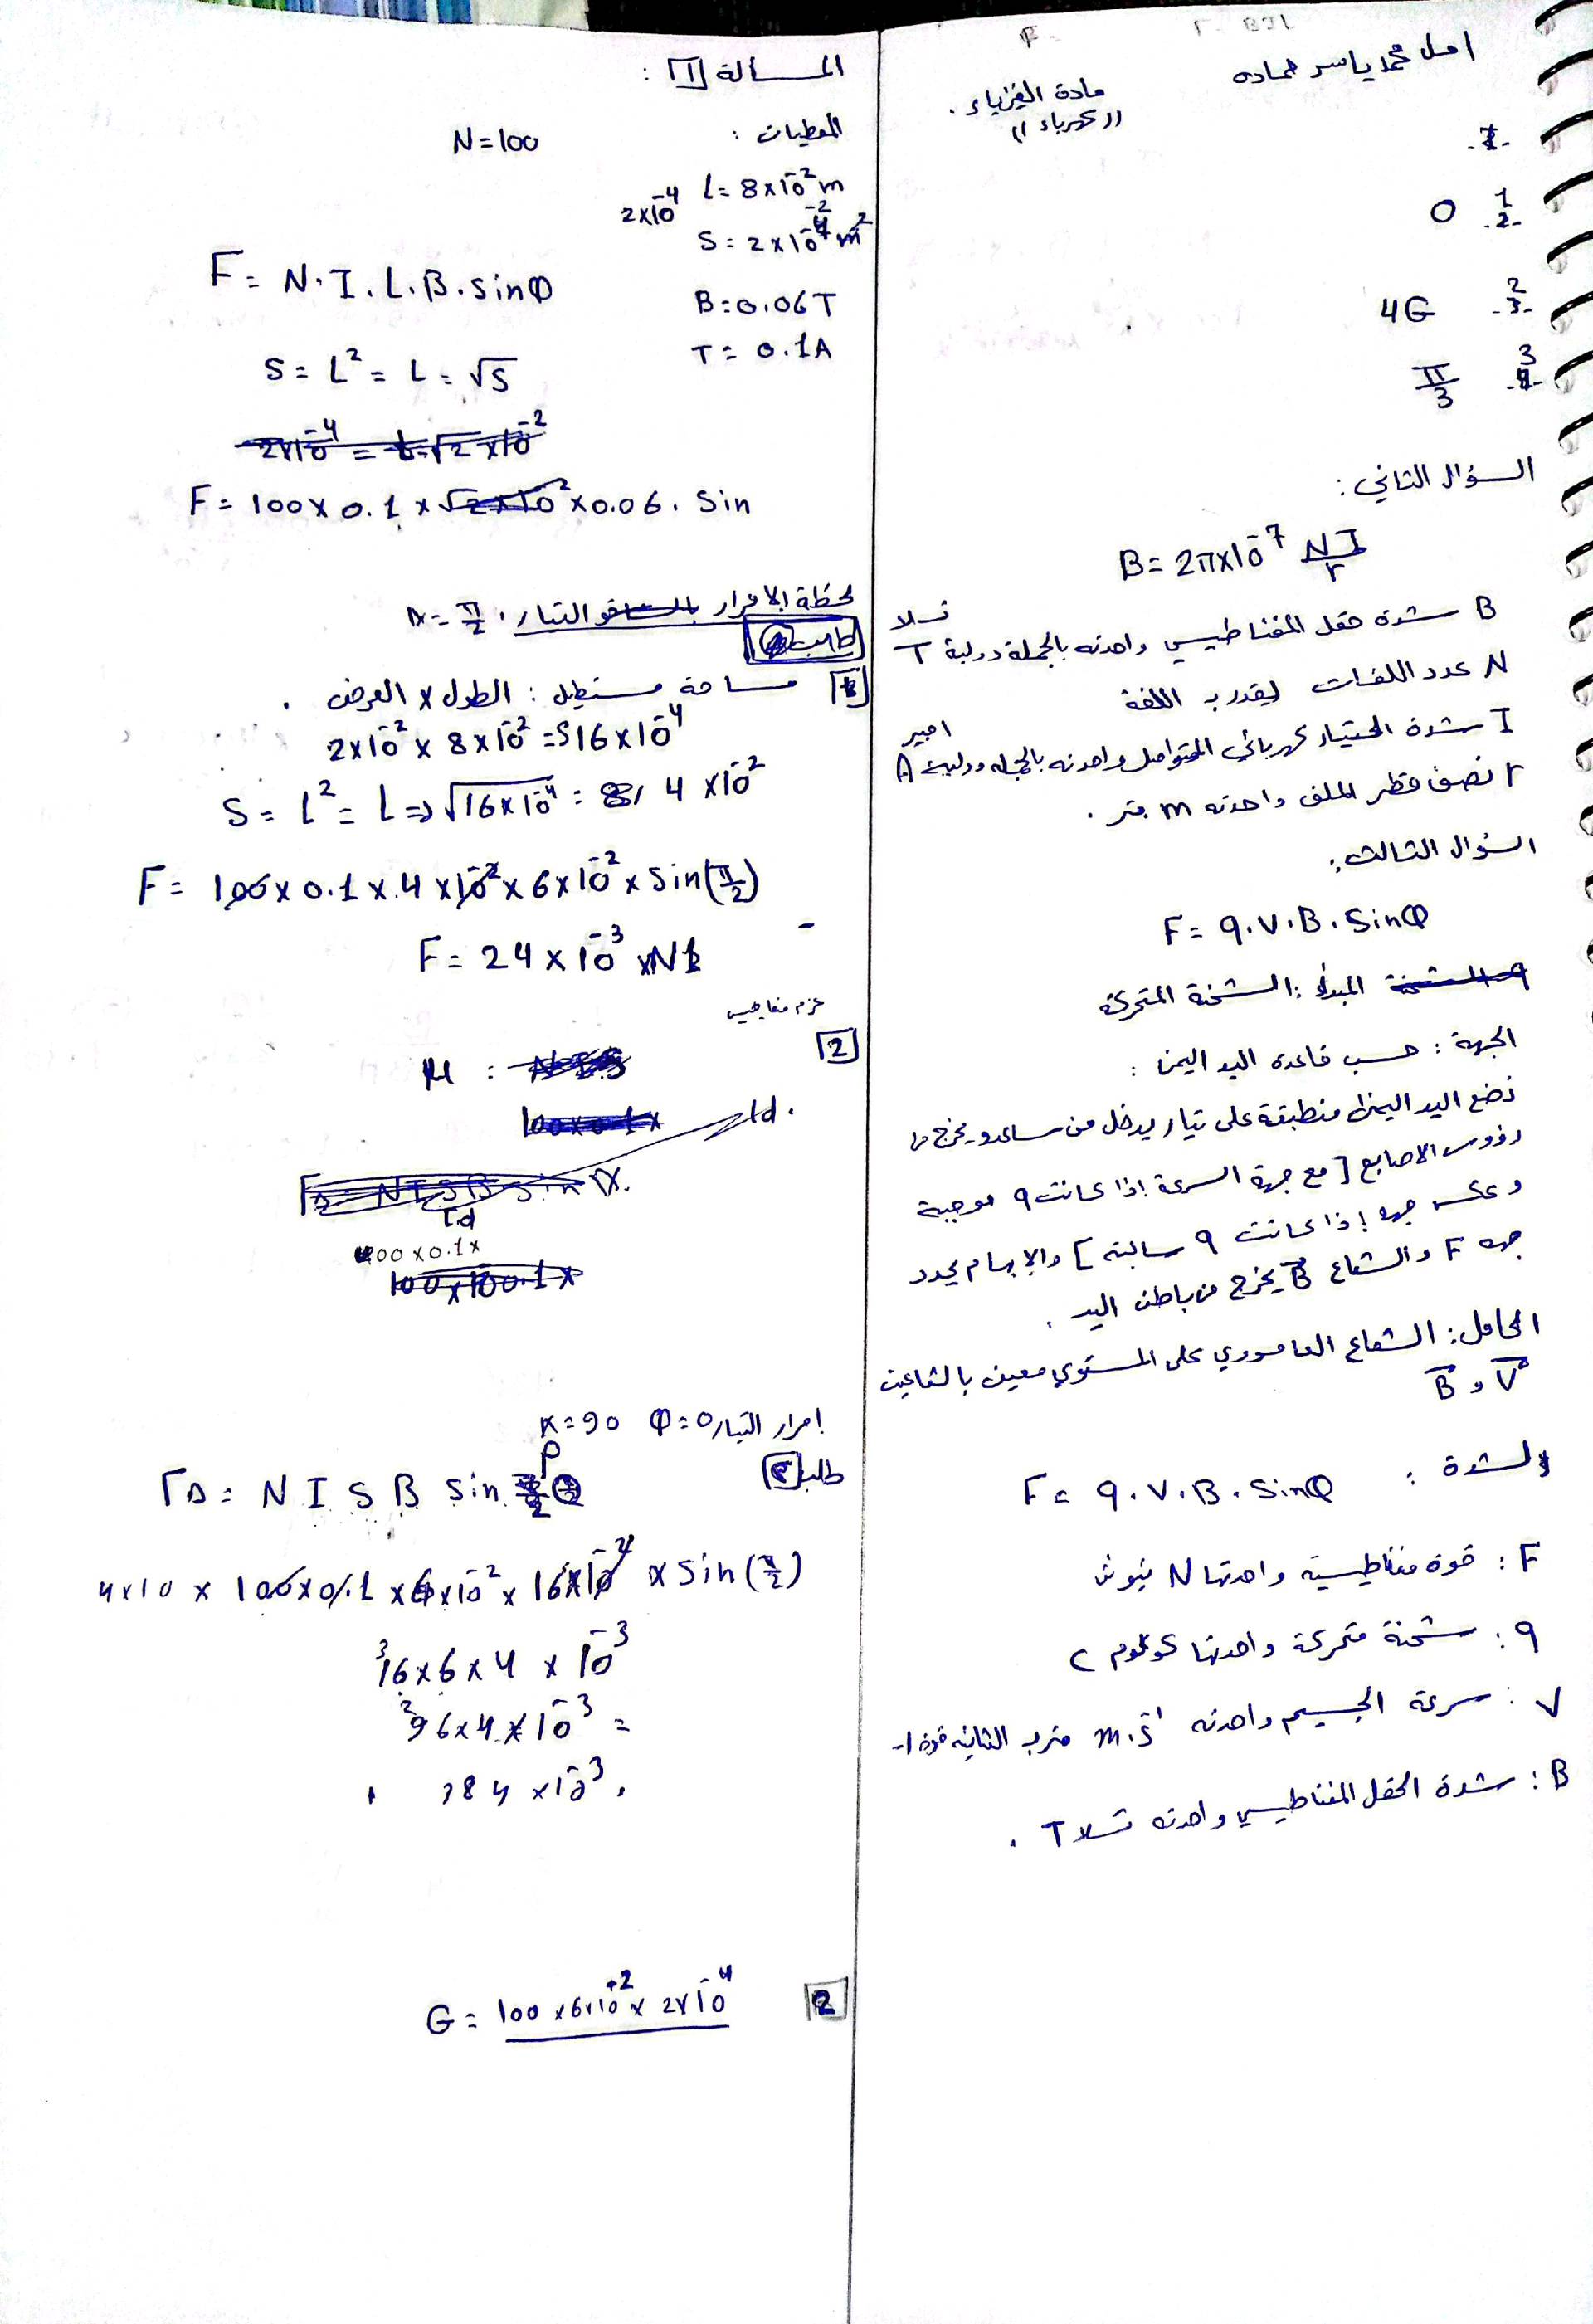 امل محمد ياسر حماده
مادة الفيزياء .
(( كهرباء ))
-1-
1 -2- O
2 -3- 4G
3 -4- π/3
السؤال الثاني :
B = 2π×10⁻⁷ NI/r
B شدة حقل المغناطيسي واحدته بالجملة دولية T تسلا
N عدد اللفات يقدر بـ اللفة
I شدة التيار كهربائي المتواصل واحدته بالجملة دولية A امبير
r نصف قطر الملف واحدته m متر .
السؤال الثالث :
F = q.V.B.sinΦ
المبدأ : الشحنة المتحركة
الجهة : حسب قاعدة اليد اليمنى :
نضع اليد اليمنى منطبقة على تيار يدخل من ساعد و يخرج من
رؤوس الاصابع [ مع جهة السرعة اذا كانت q موجبة
و عكس جهة اذا كانت q سالبة ] والابهام يحدد
جهة F والشعاع B يخرج من باطن اليد .
الحامل : الشعاع العامودي على المستوي معين بالشاعين
V و B
الشدة : F = q.V.B.sinΦ
F : قوة مغناطيسية واحدتها N نيوتن
q : شحنة متحركة واحدتها كولوم C
V : سرعة الجسيم واحدته m.s⁻¹ متر بـ الثانية قوة -1
B : شدة الحقل المغناطيسي واحدته تسلا T .
المسألة 1 :
المعطيات : N=100
L = 8×10⁻² m
2×10⁻⁴
S = 2×10⁻² m²
B = 0.06T
I = 0.1A
F = N.I.L.B.sinΦ
S = L² = L = √S
2×10⁻⁴ = L = √2×10⁻²
F = 100×0.1×√2×10⁻²×0.06. Sin
لحظة الامرار التيار . α = π/2
طلب
1 مساحة مستطيل : الطول × العرض .
2×10⁻² × 8×10⁻² = S16×10⁻⁴
S = L² = L ⇒ √16×10⁻⁴ = 4×10⁻²
F = 100×0.1×4×10⁻²×6×10⁻²×Sin(π/2)
F = 24×10⁻³ N
عزم مغناطيسي
2
M :
Id.
100×0.1×
امرار التيار Φ=0 α=90
طلب 2
ΓΔ = N I S B sin
4×10 × 100×0.1×6×10⁻²×16×10⁻⁴ × Sin(π/2)
16×6×4×10⁻³
96×4×10⁻³ =
384×10⁻³ .
2 G = 100×6×10⁺²×2×10⁻⁴